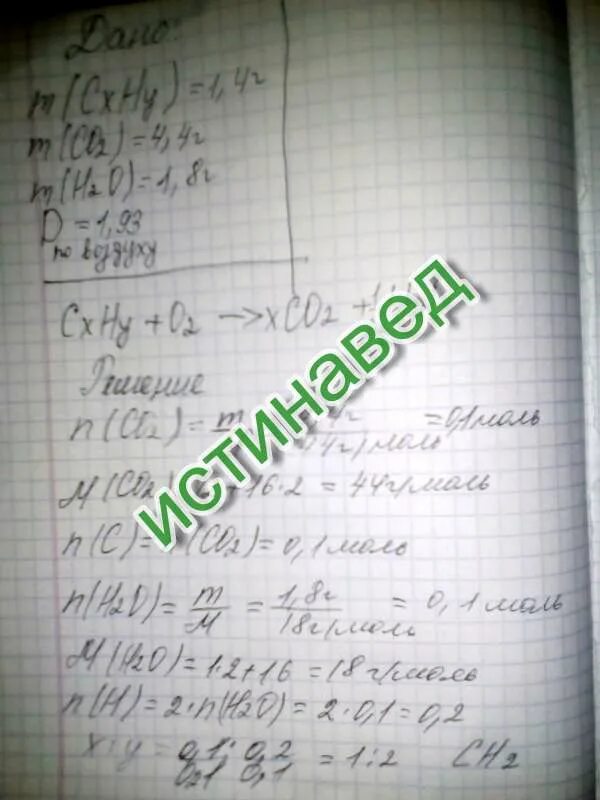 Дано:
m(CxHy)=1,4г
m(CO2)=4,4г
m(H2O)=1,8г
D =1,93
по воздуху
CxHy + O2 → xCO2 +
Решение
n(CO2)= m = 0,1моль
44г/моль
M(CO2) +16·2 = 44г/моль
n(C)= (CO2)= 0,1моль
n(H2O)= m/M = 1,8г/18г/моль = 0,1моль
M(H2O)=1·2+16 =18г/моль
n(H)=2·n(H2O)= 2·0,1=0,2
x:y = 0,1/0,1 : 0,2/0,1 = 1:2 CH2
истинавед